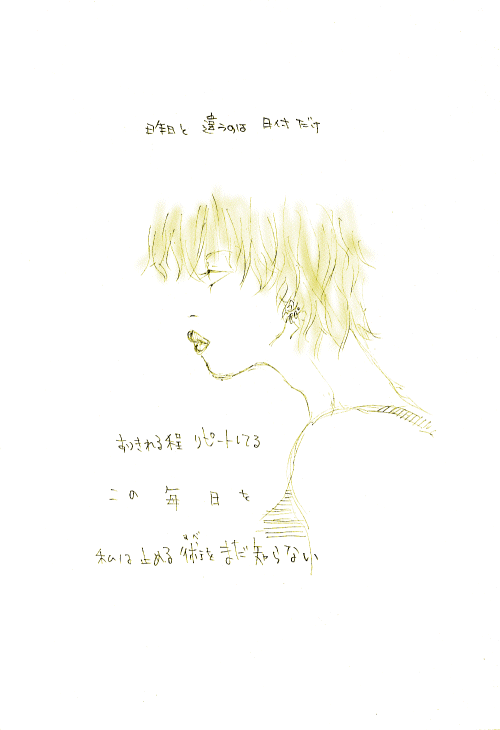 昨日と 違うのは 日付だけ
すりきれる程 リピートしてる
この 毎 日 を
私は 止める 術を まだ 知らない
すべ